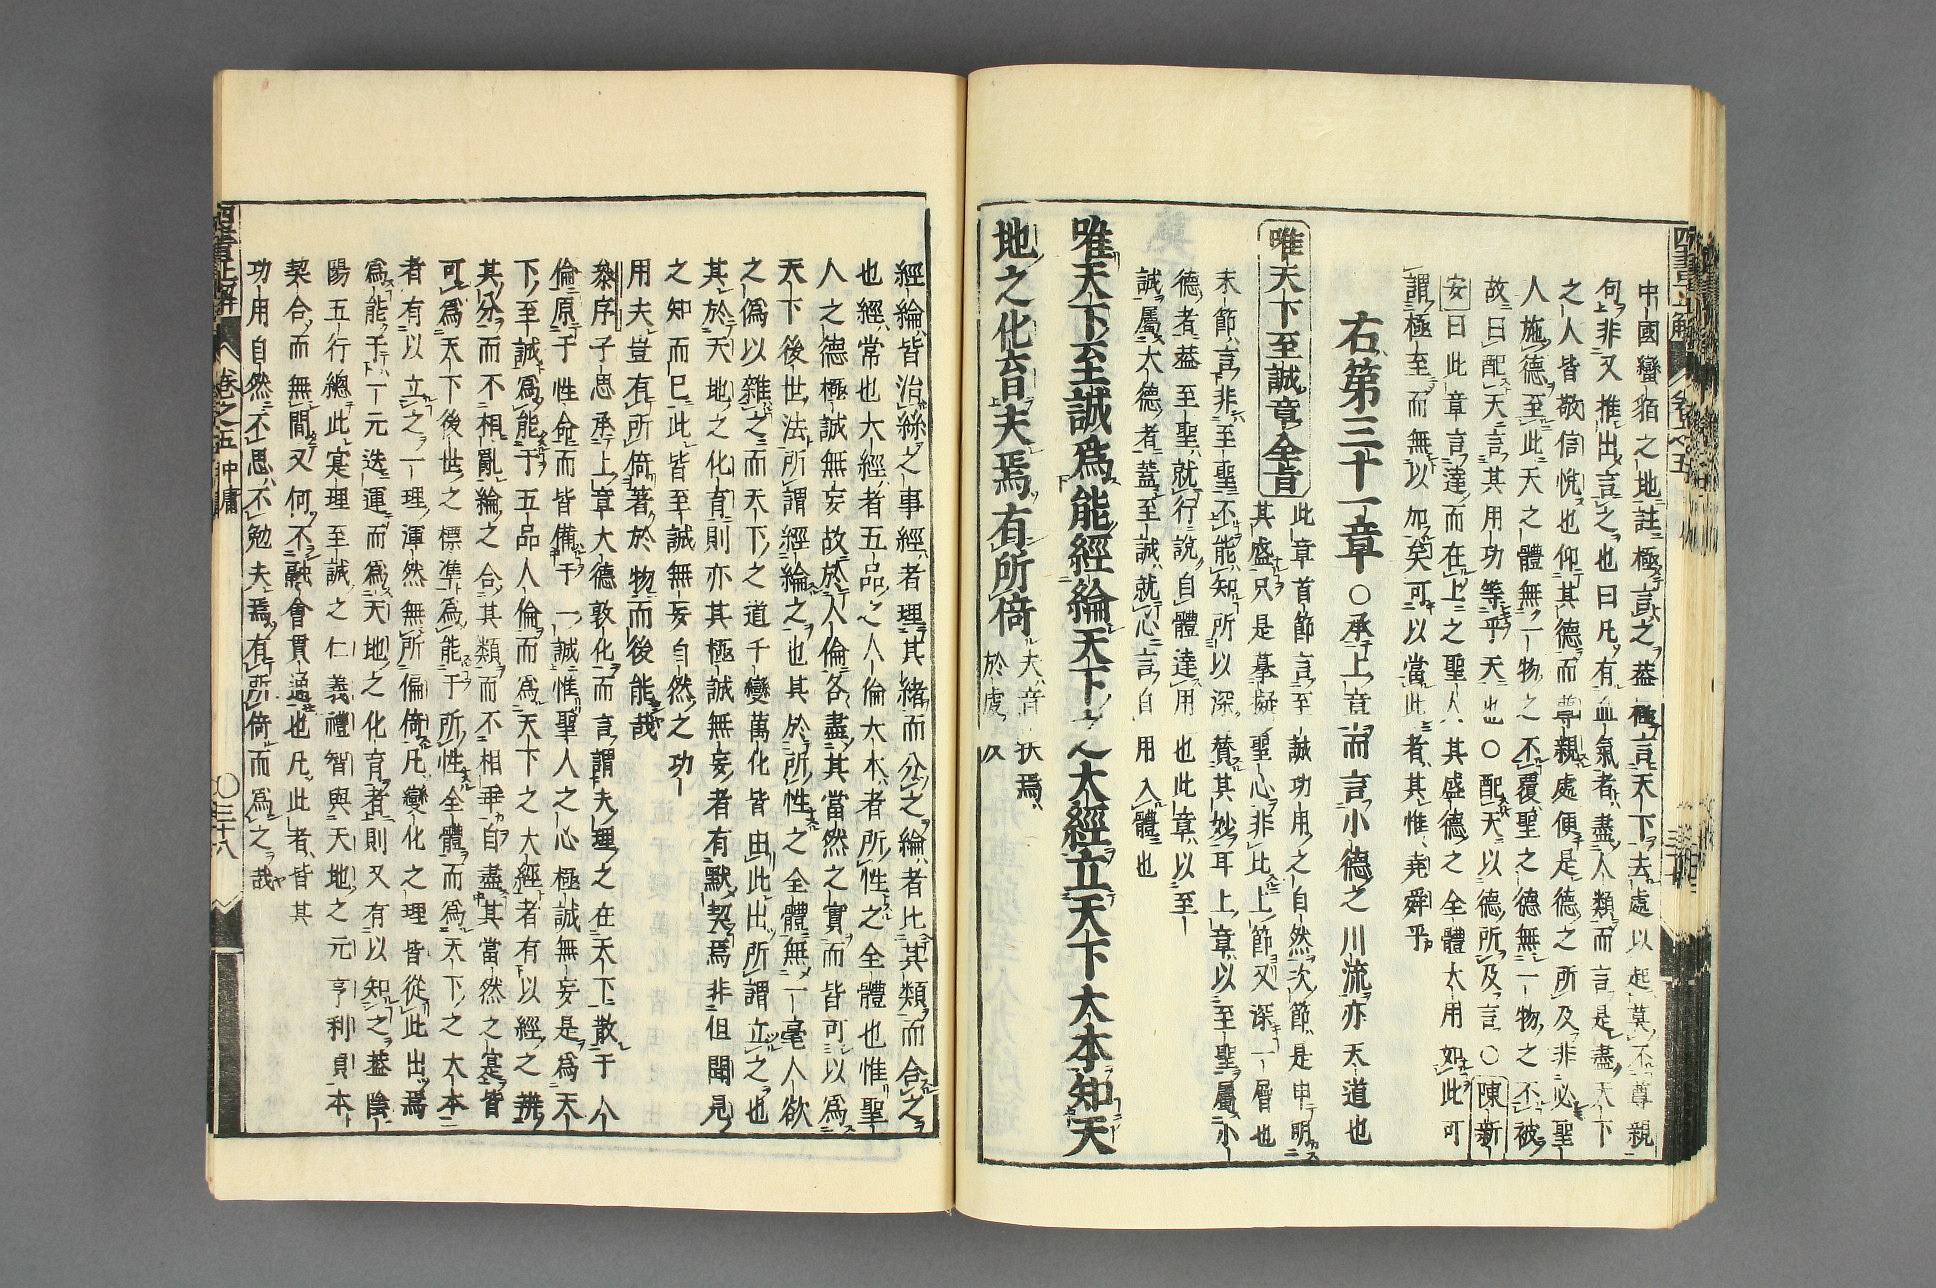 中國蠻貊之地註極言之葢極言天下去處以起莫不尊親
句非又推出言之也曰凡有血氣者盡人類而言是盡天下
之人皆敬信悅也仰其德而尊親處便是德之所及非必聖
人施德至此天之體無一物之不覆聖之德無一物之不被
故曰配天言其用功等乎天也○配天以德所及言○陳新
安曰此章言達而在上之聖人其盛德之全體大用如此可
謂極至而無以加矣可以當此者其惟堯舜乎
右第三十一章○承上章而言小德之川流亦天道也
唯天下至誠章全旨
此章首節言至誠功用之自然次節是申明
其盛只是摹擬聖心非比上節又深一層也
末節言非至聖不能知所以深贊其妙耳上章以至聖屬小
德者葢至聖就行說自體達用也此章以至
誠屬大德者葢至誠就心言自用入體也
唯天下至誠爲能經綸天下之大經立天下大本知天
地之化育夫焉有所倚
夫音扶焉
於虔反
經綸皆治絲之事經者理其緒而分之綸者比其類而合之
也經常也大經者五品之人倫大本者所性之全體也惟聖
人之德極誠無妄故於人倫各盡其當然之實而皆可以爲
天下後世法所謂經綸之也其於所性之全體無一毫人欲
之僞以雜之而天下之道千變萬化皆由此出所謂立之也
其於天地之化育則亦其極誠無妄者有默契焉非但聞見
之知而已此皆至誠無妄自然之功
用夫豈有所倚著於物而後能哉
叅序子思承上章大德敦化而言謂夫理之在天下散于人
倫原于性命而皆備于一誠惟聖人之心極誠無妄是爲天
下至誠爲能于五品人倫而爲天下之大經者有以經之辨
其分而不相亂綸之合其類而不相乖自盡其當然之寔皆
可爲天下後世之標準爲能于所性全體而爲天下之大本
者有以立之一理渾然無所偏倚凡變化之理皆從此出焉
爲能于一元迭運而爲天地之化育者則又有以知之葢陰
陽五行總此寔理至誠之仁義禮智與天地之元亨利貞本
契合而無間又何不融會貫通也凡此者皆其
功用自然不思不勉夫焉有所倚而爲之哉
四書正解
卷之五 中庸
○三十八